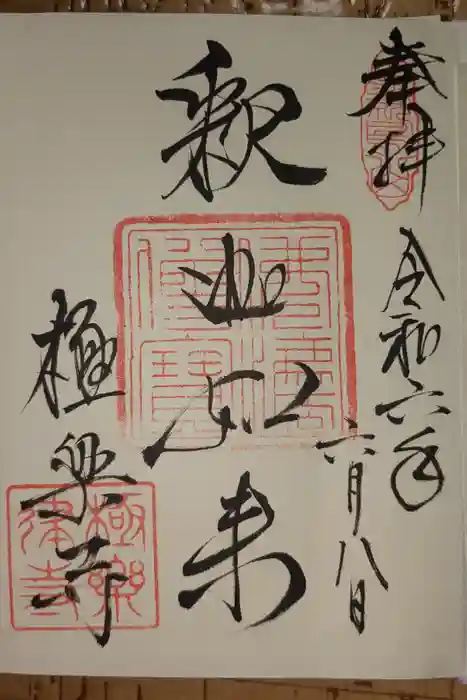 奉拝
令和六年
六月八日
釈迦如来
極楽寺